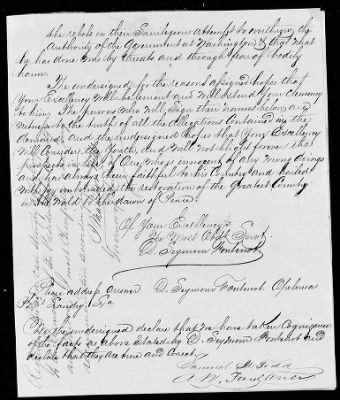 the rebels in their Sacrilegious attempt to overthrow the
Authority of the Government at Washington & that what
he has done was by threats and through fear of bodily
harm.
The undersigned for the reasons assigned hopes that
Your Excellency will relent and will extend Your Clemency
to him. The persons who will sign their names below are
witnesses to the truth of all the Allegations Contained in the
and the undersigned hopes that Your Excellency
will Consider his Youth, and will not blight forever the
prospects in life of One, who is innocent of any wrong doings
and has always been faithful to his Country and hailed
with joy the restoration of the Greatest Country
in the world to the dawn of Peace.
Of Your Excellency
The Most Obdt Servt
D. Seymour Fontenot
Please address answer D. Seymour Fontenot. Opelousas
Landry
We the undersigned declare that we have taken Cognizance
of the facts as above Stated by D. Seymour Fontenot and
declare that they are true and Correct.
Samuel M Todd
A. W. Faulkner